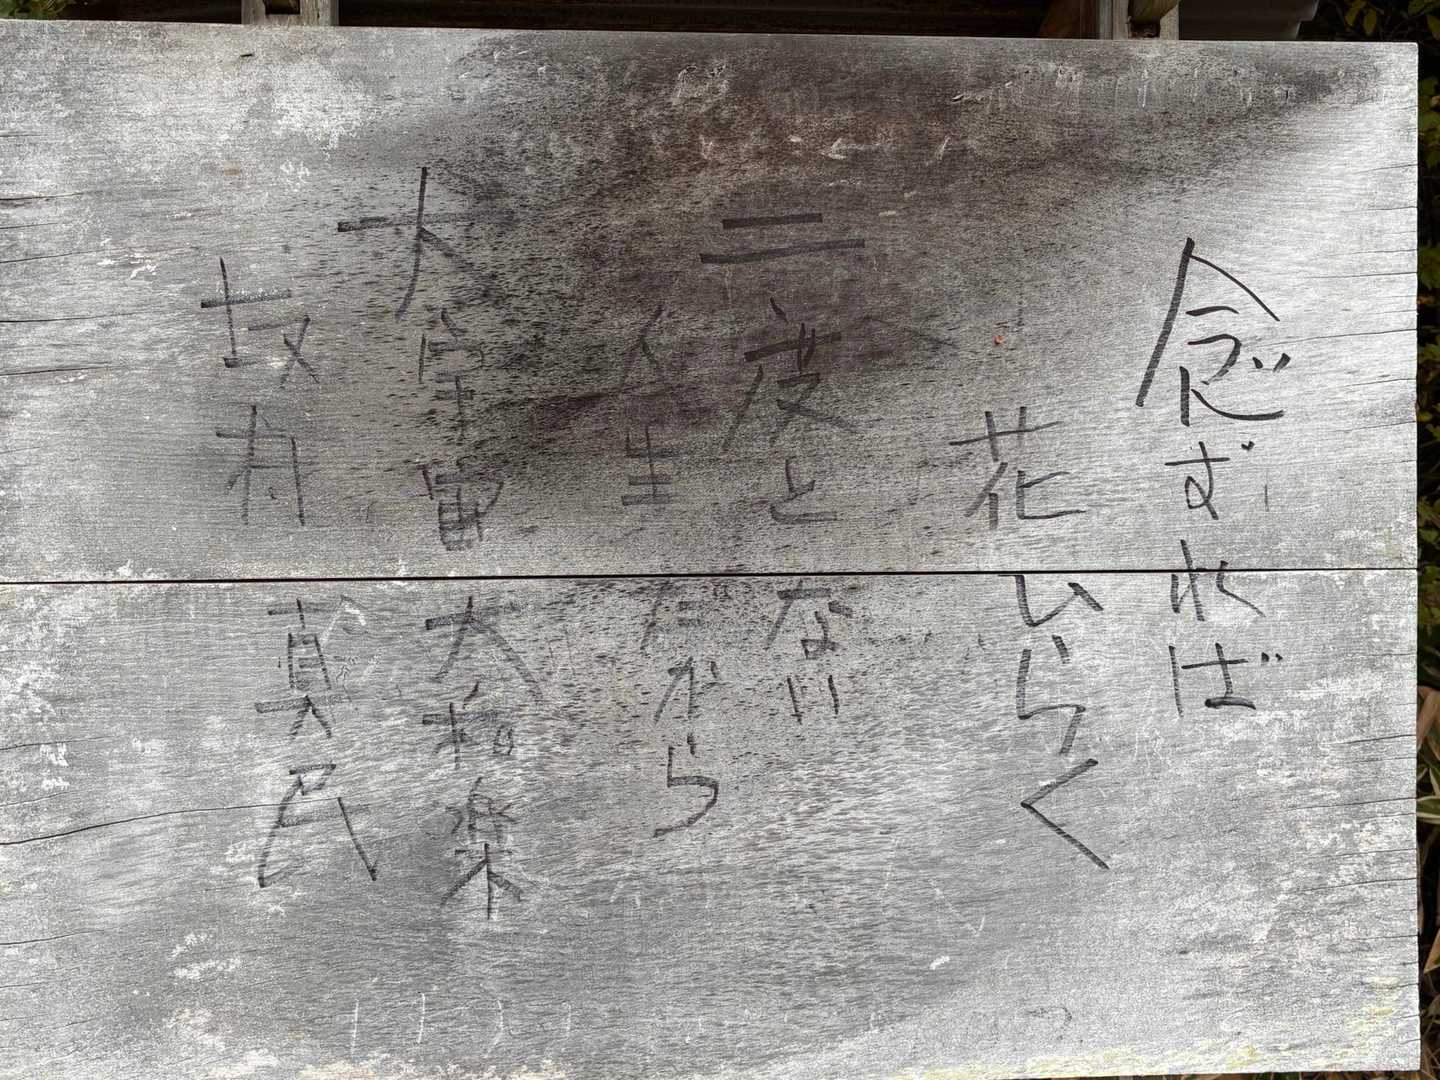 念ずれば
花ひらく
二度とない
人生だから
大宇宙大和楽
坂村真民